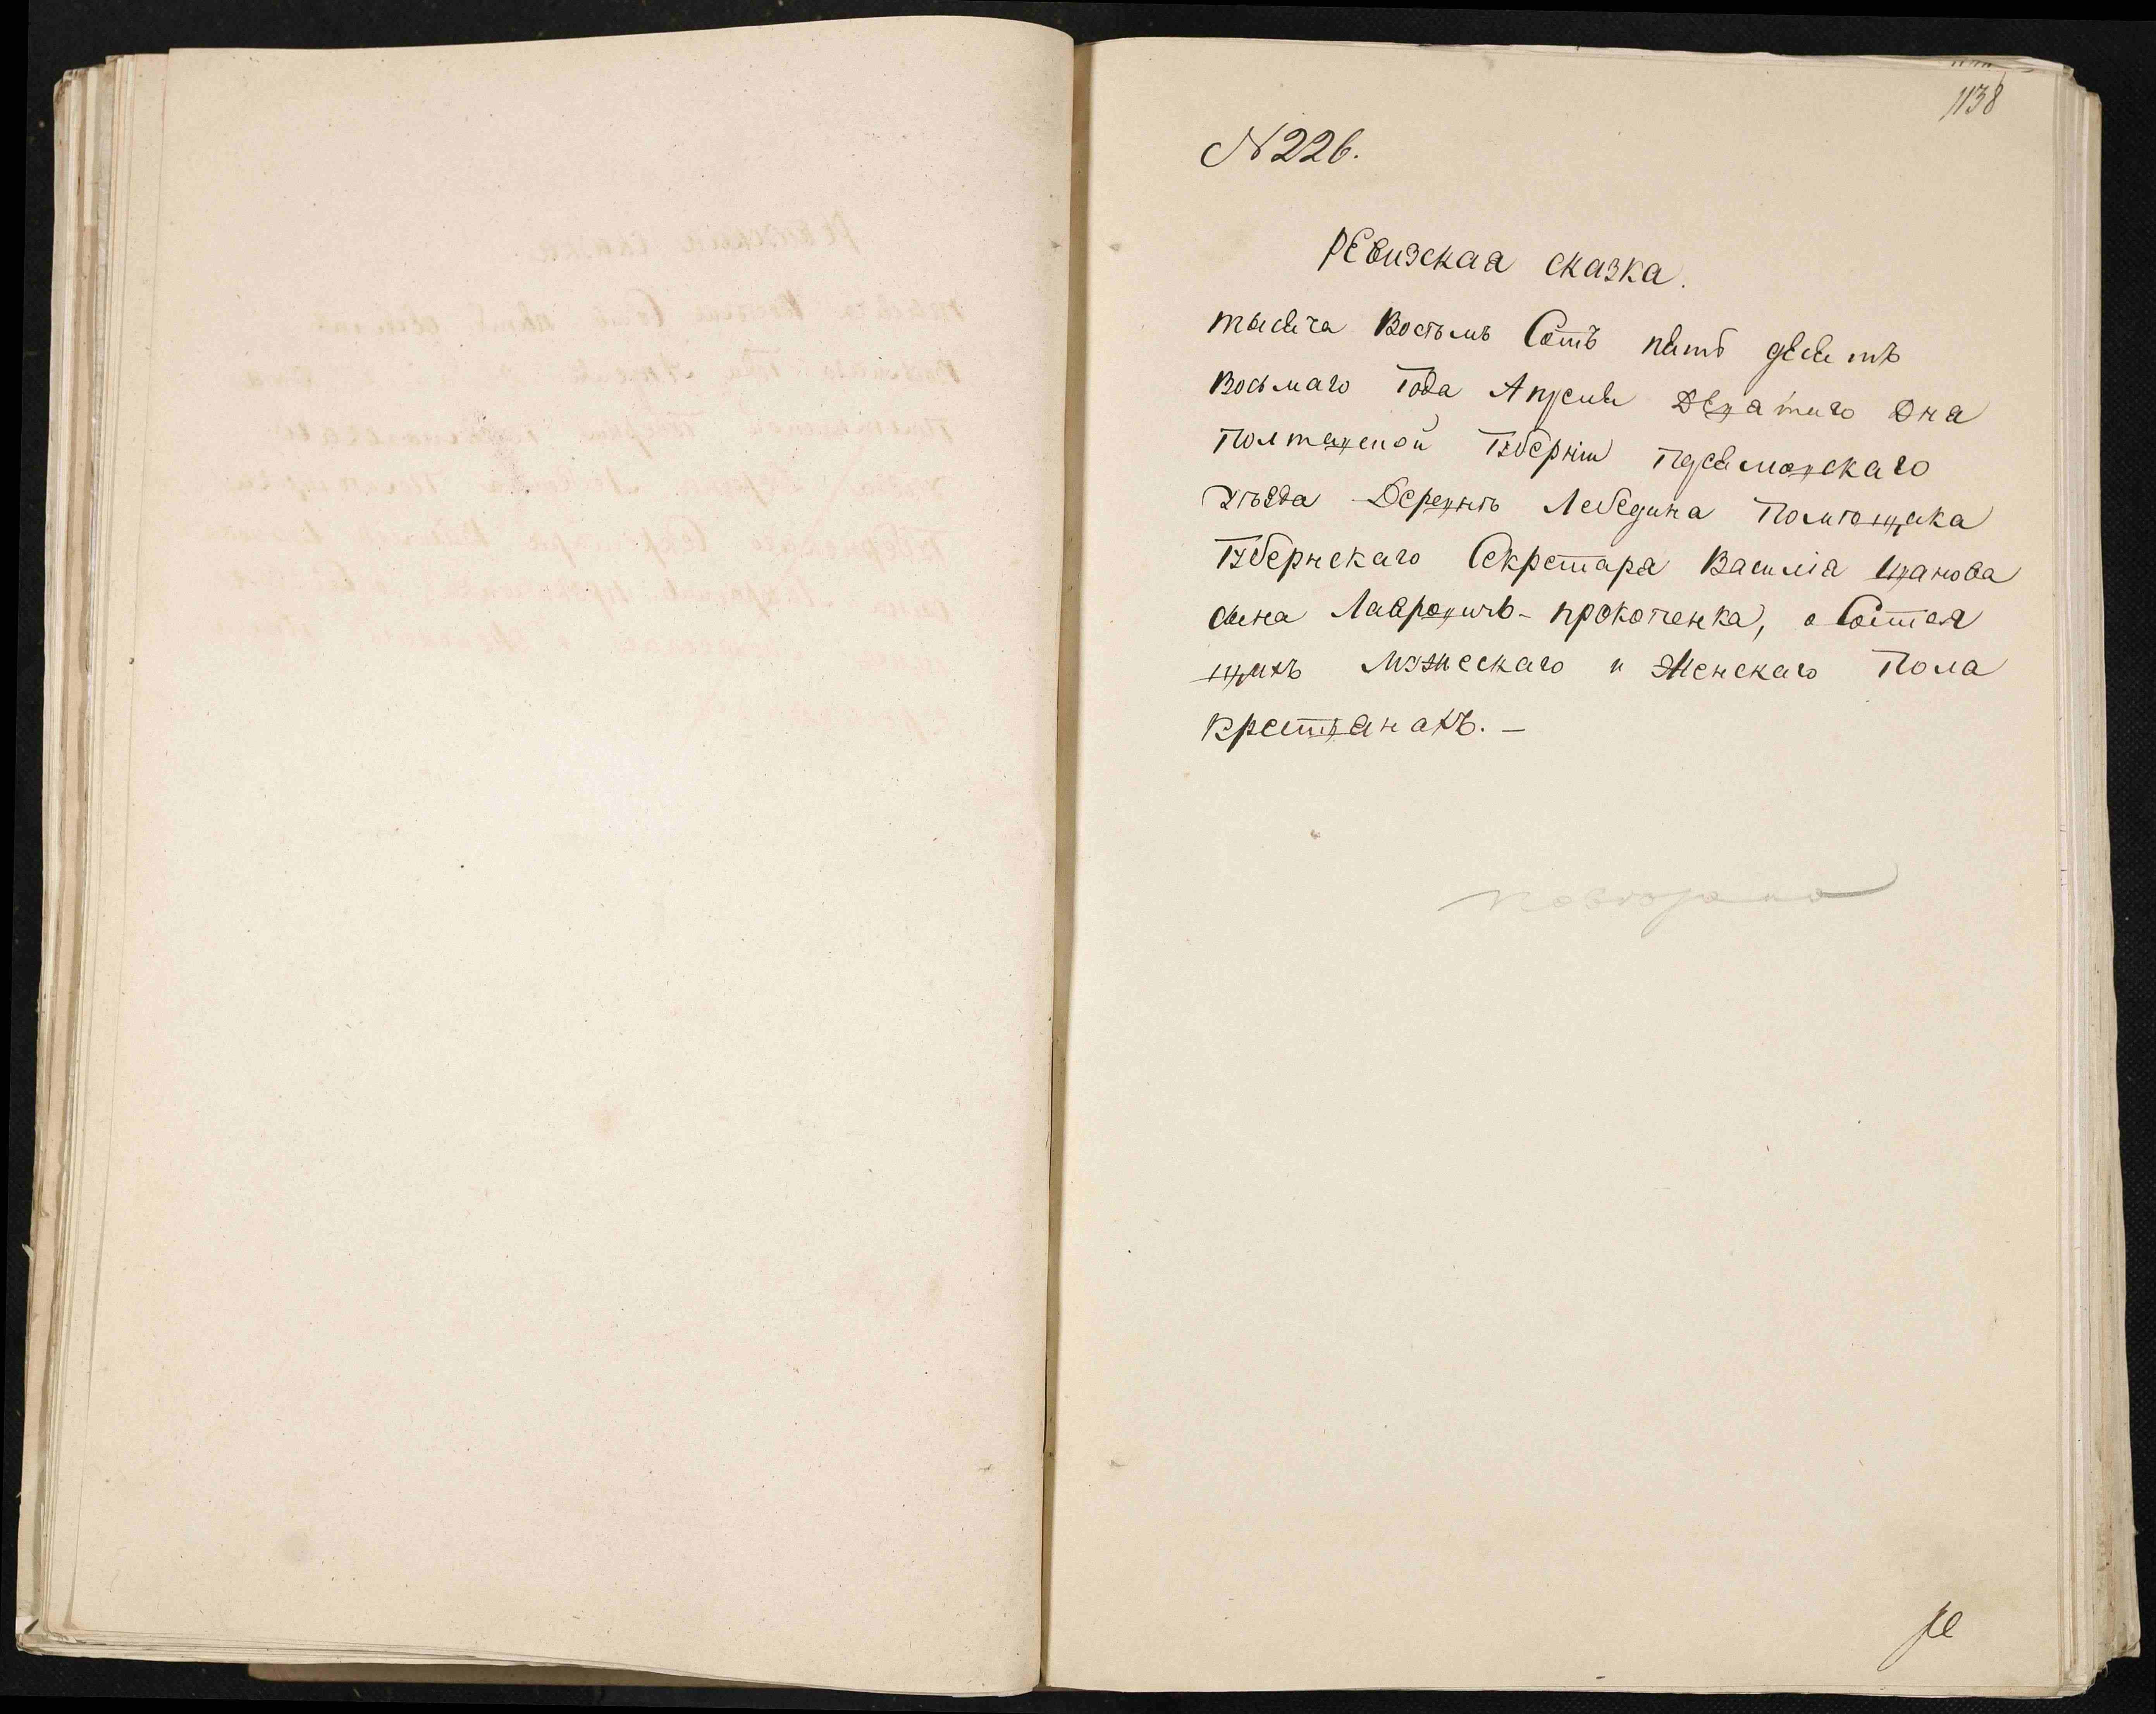 1138
№ 226.
Ревизская сказка.
тысяча Восьмь Сотъ пять десятъ
Восьмаго года Апреля Девятаго дня
Полтавской Губерніи Переяславскаго
Уѣзда Деревнѣ Лебедина Помѣщика
Губернскаго Секретаря Василія Иванова
сына Лавровичь-прокопенка, о Состоя
щихъ Мужескаго и Женскаго Пола
крестьянахъ. —
повторено